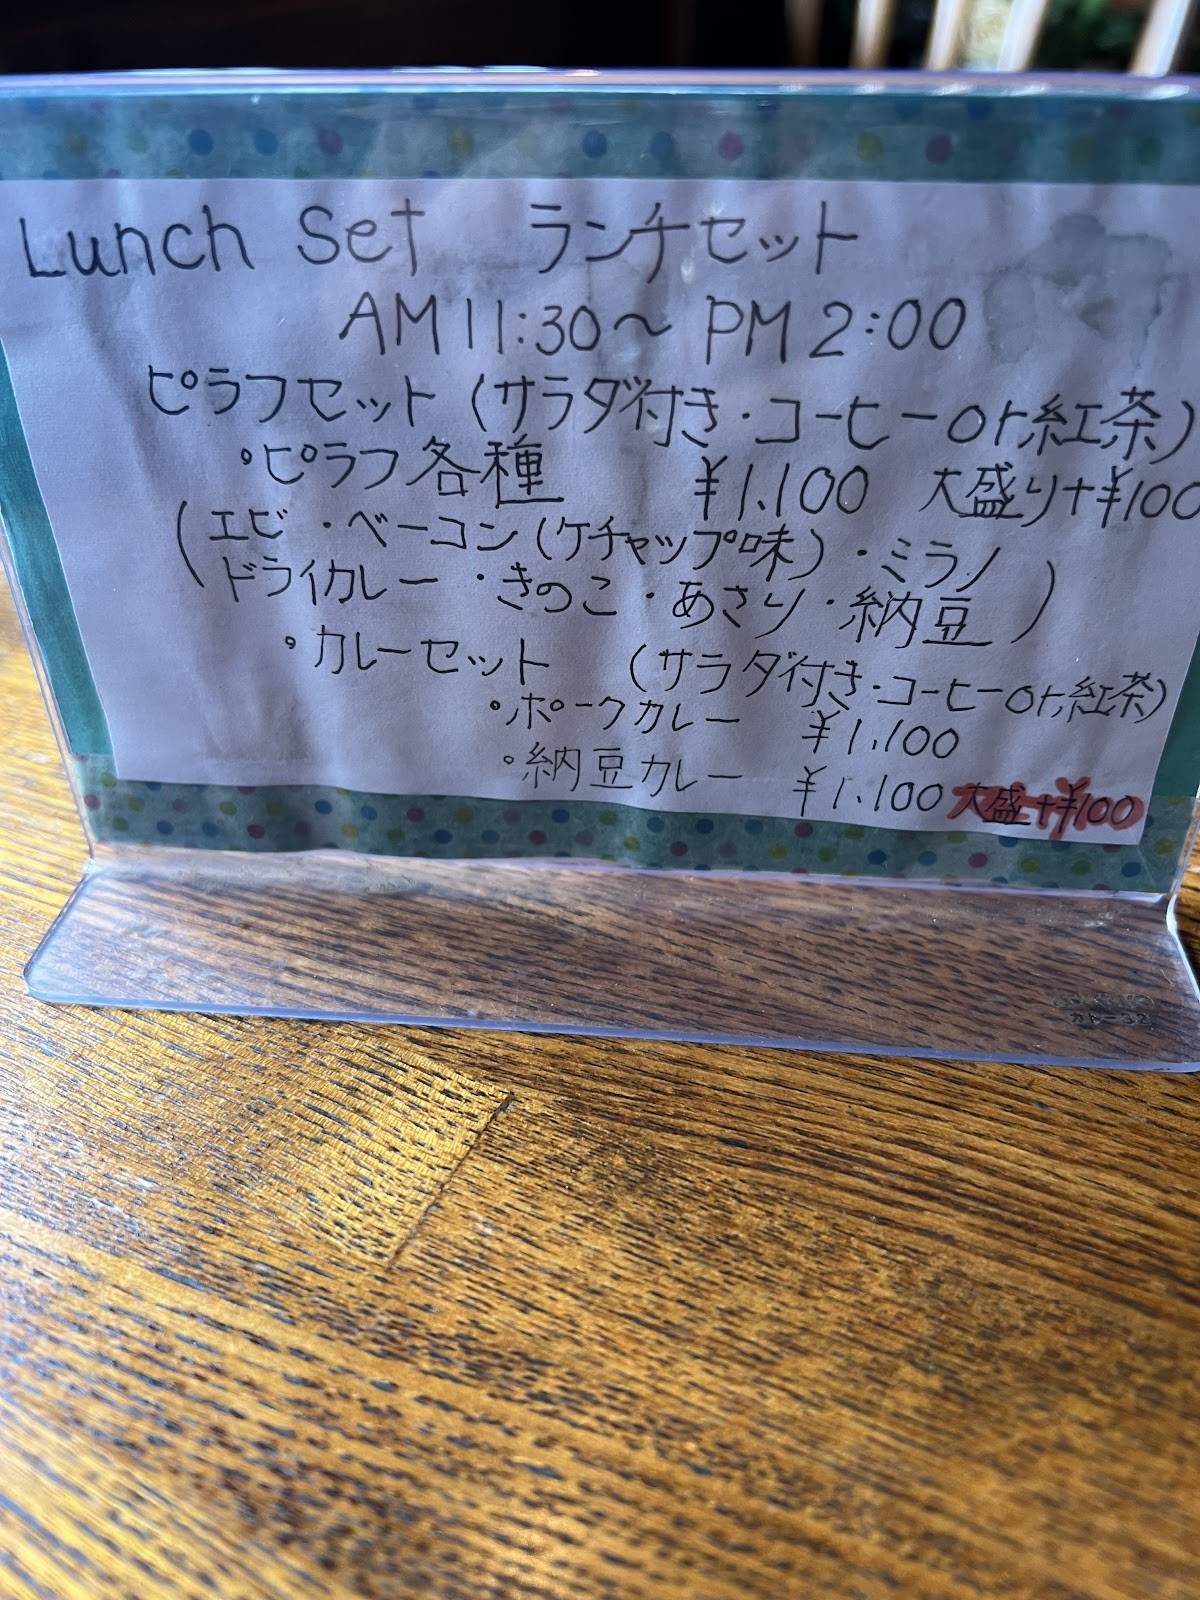 Lunch Set ランチセット
AM 11:30〜PM 2:00
ピラフセット (サラダ付き・コーヒーor紅茶)
・ピラフ各種 ¥1.100 大盛り+¥100
(エビ・ベーコン(ケチャップ味)・ミラノ
ドライカレー・きのこ・あさり・納豆)
・カレーセット (サラダ付き・コーヒーor紅茶)
・ポークカレー ¥1.100
・納豆カレー ¥1.100 大盛+¥100